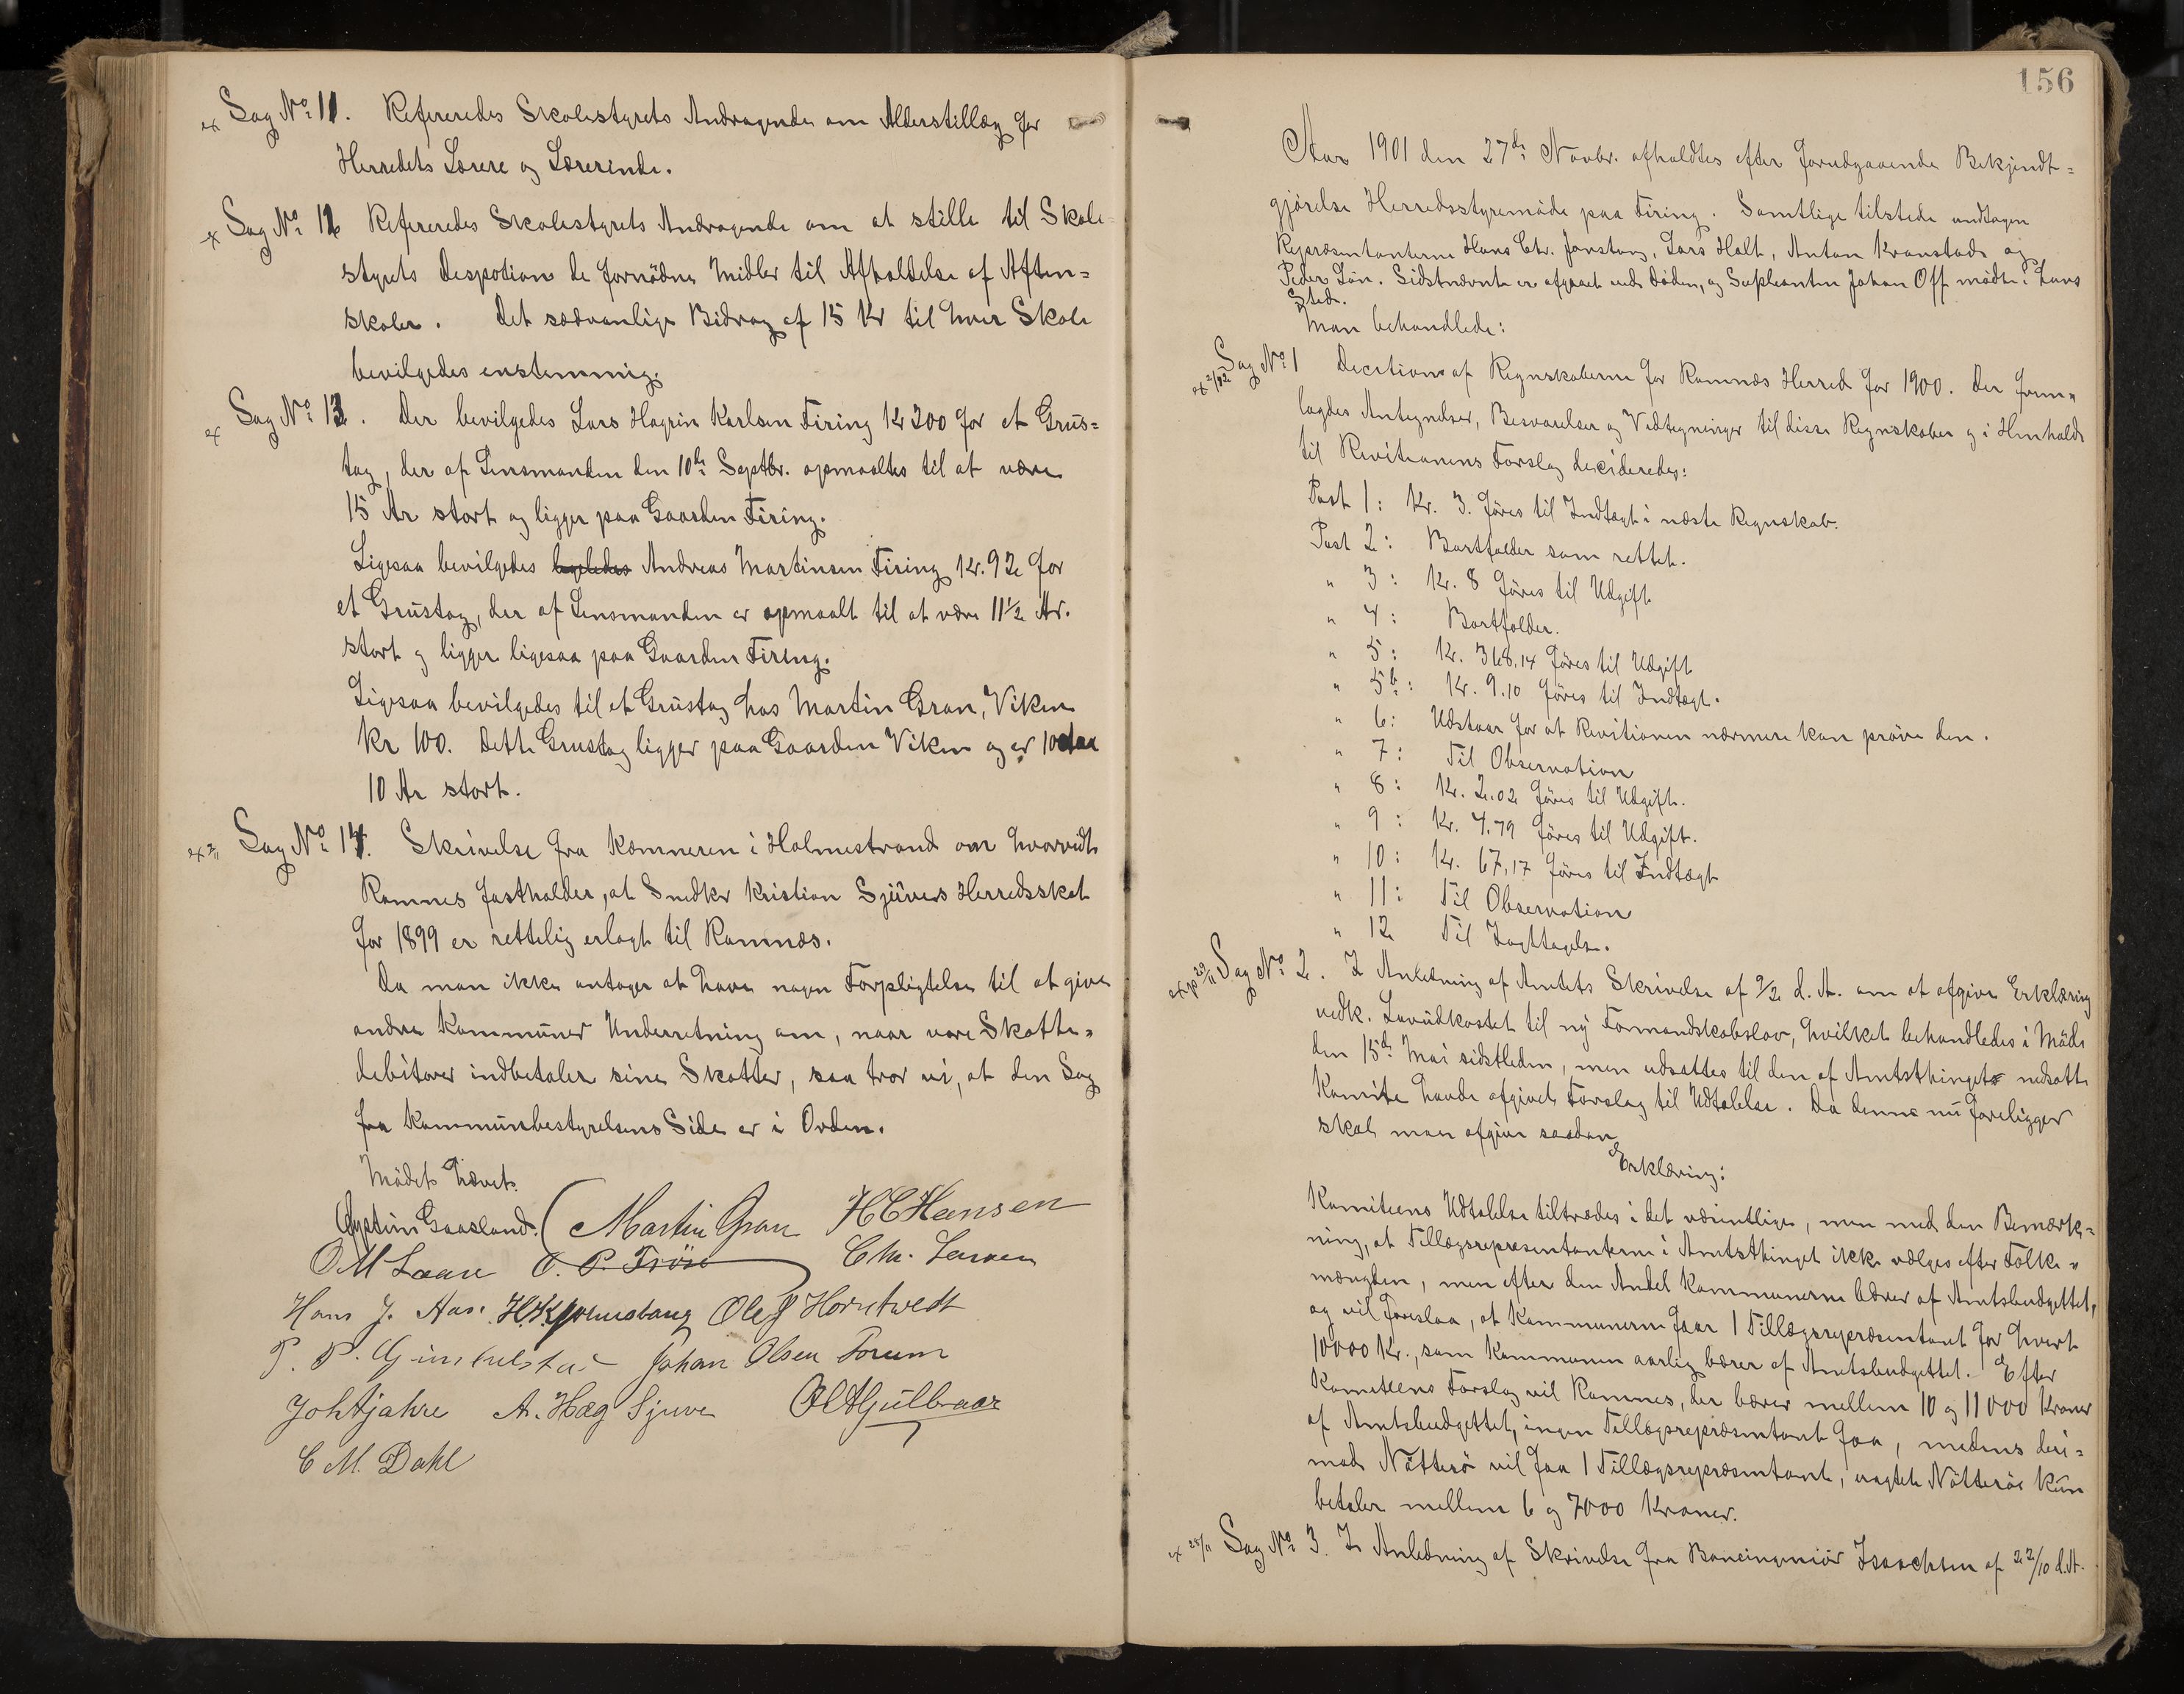 ex Sag No 11. Refereredes Skolestyrets Andragende om Alderstillæg for
Herredets Lærere og Lærerinde.
ex Sag No 12 Refereredes Skolestyrets Andragende om at stille til Skole-
styrets Despotion de fornödne Midler til Afholdelse af Aften=
skoler. Det sædvanlige Bidrag af 15 Kr til hver Skole
bevilgedes enstemmig.
ex Sag No 13. Der bevilgedes Lars Hagrin Karlsen Firing Kr 200 for et Grus=
tag, der af Lensmanden den 10de Septbr. opmaaltes til at være
15 Ar stort og ligger paa Gaarden Firing.
Ligesaa bevilgedes Andreas Martinsen Firing Kr. 92 for
et Grustag, der af Lensmanden er opmaalt til at være 11½ Ar.
stort og ligger ligesaa paa Gaarden Firing.
Ligesaa bevilgedes til et Grustag hos Martin Gran, Viken
Kr 100. Dette Grustag ligger paa Gaarden Viken og er
10 Ar stort.
ex Sag No 14. Skrivelse fra Kæmneren i Holmestrand om hvorvidt
Ramnes fastholder, at Snedker Kristian Sjüves Herredsskat
for 1899 er rettelig erlagt til Ramnæs.
Da man ikke antager at have nogen Forpligtelse til at give
andre Kommuner Underretning om, naar vore Skatte=
debitorer indbetaler sine Skatter, saa tror vi, at den Sag
fra Kommunbestyrelsens Side er i Orden.
Mödet hævet.
Gaasland. Martin Gran H C Hansen
O M Laane O. P. Tröse Chr. Larsen
Hans J. Aas. Ole J Horntvedt
P. P. Johan Olsen Forum
Joh Ajahre A. Hæg Sjuve
C M. Dahl
156
Aar 1901 den 27de Novbr. afholdtes efter forudgaaende Bekjendt=
gjörelse Herredsstyremöde paa Firing. Samtlige tilstede undtagen
Repræsentanterne Hans Chr. Jonstang, Lars Holt, Anton Kranstad og
Peder Lön. Sidstnævnte er afgaaet ved Döden, og Supleanten Johan Off mödte i Lans
Sted.
Man behandlede:
ex 2/1 02 Sag No 1 Decition af Regnskaberne for Ramnæs Herred for 1900. Der frem=
lagdes Antegnelser, Besvarelser og Vedtegninger til disse Regnskaber og i Henhold
til Revitionens Forslag decideredes:
Post 1: Kr. 3. föres til Indtægt i næste Regnskab.
Post 2: Bortfalder som rettet.
" 3: Kr. 8 föres til Udgift
" 4: Bortfalder.
" 5: Kr. 368,14 föres til Udgift
" 5b: Kr. 9.10 föres til Indtægt.
" 6: Udstaar for at Revitionen nærmere kan pröve den.
" 7: Til Observation
" 8: Kr. 2.02 föres til Udgift.
" 9: Kr. 4.79 föres til Udgift.
" 10: Kr. 67,17 föres til Indtægt
" 11: Til Observation
" 12 Til Iagttagelse.
29/11 Sag No 2. I Anledning af Amtets Skrivelse af 9/2 d. A. om at afgive Erklæring
vedk. Lovudkastet til ny Formandskabslov, hvilket behandledes i Möde
den 15de Mai sidstleden, men udsattes til den af Amtsthinget nedsatte
Komite havde afgivet Forslag til Udtalelse. Da denne nu foreligger
skal man afgive saadan
Erklæring:
Komiteens Udtalelse tiltrædes i det væsentlige, men med den Bemærk=
ning, at Tillægsrepresentanterne i Amtsthinget ikke vælges efter Folke=
mængden, men efter den Andel Kommunerne bærer af Amtsbudgettet,
og vil foreslaa, at Kommunerne faar 1 Tillægsrepræsentant for hvert
10000 Kr., som Kommunen aarlig bærer af Amtsbudgettet. Efter
Komiteens Forslag vil Ramnes, der bærer mellem 10 og 11000 Kroner
af Amtsbudgettet, ingen Tillægsrepræsentant faa, medens deri=
mod Nötterö vil faa 1 Tillægsrepræsentant, uagtet Nötterö kun
betaler mellem 6 og 7000 Kroner.
ex 28/11 Sag No 3. I Anledning af Skrivelse fra Baneingeniör Isaachsen af 22/10 d.A.